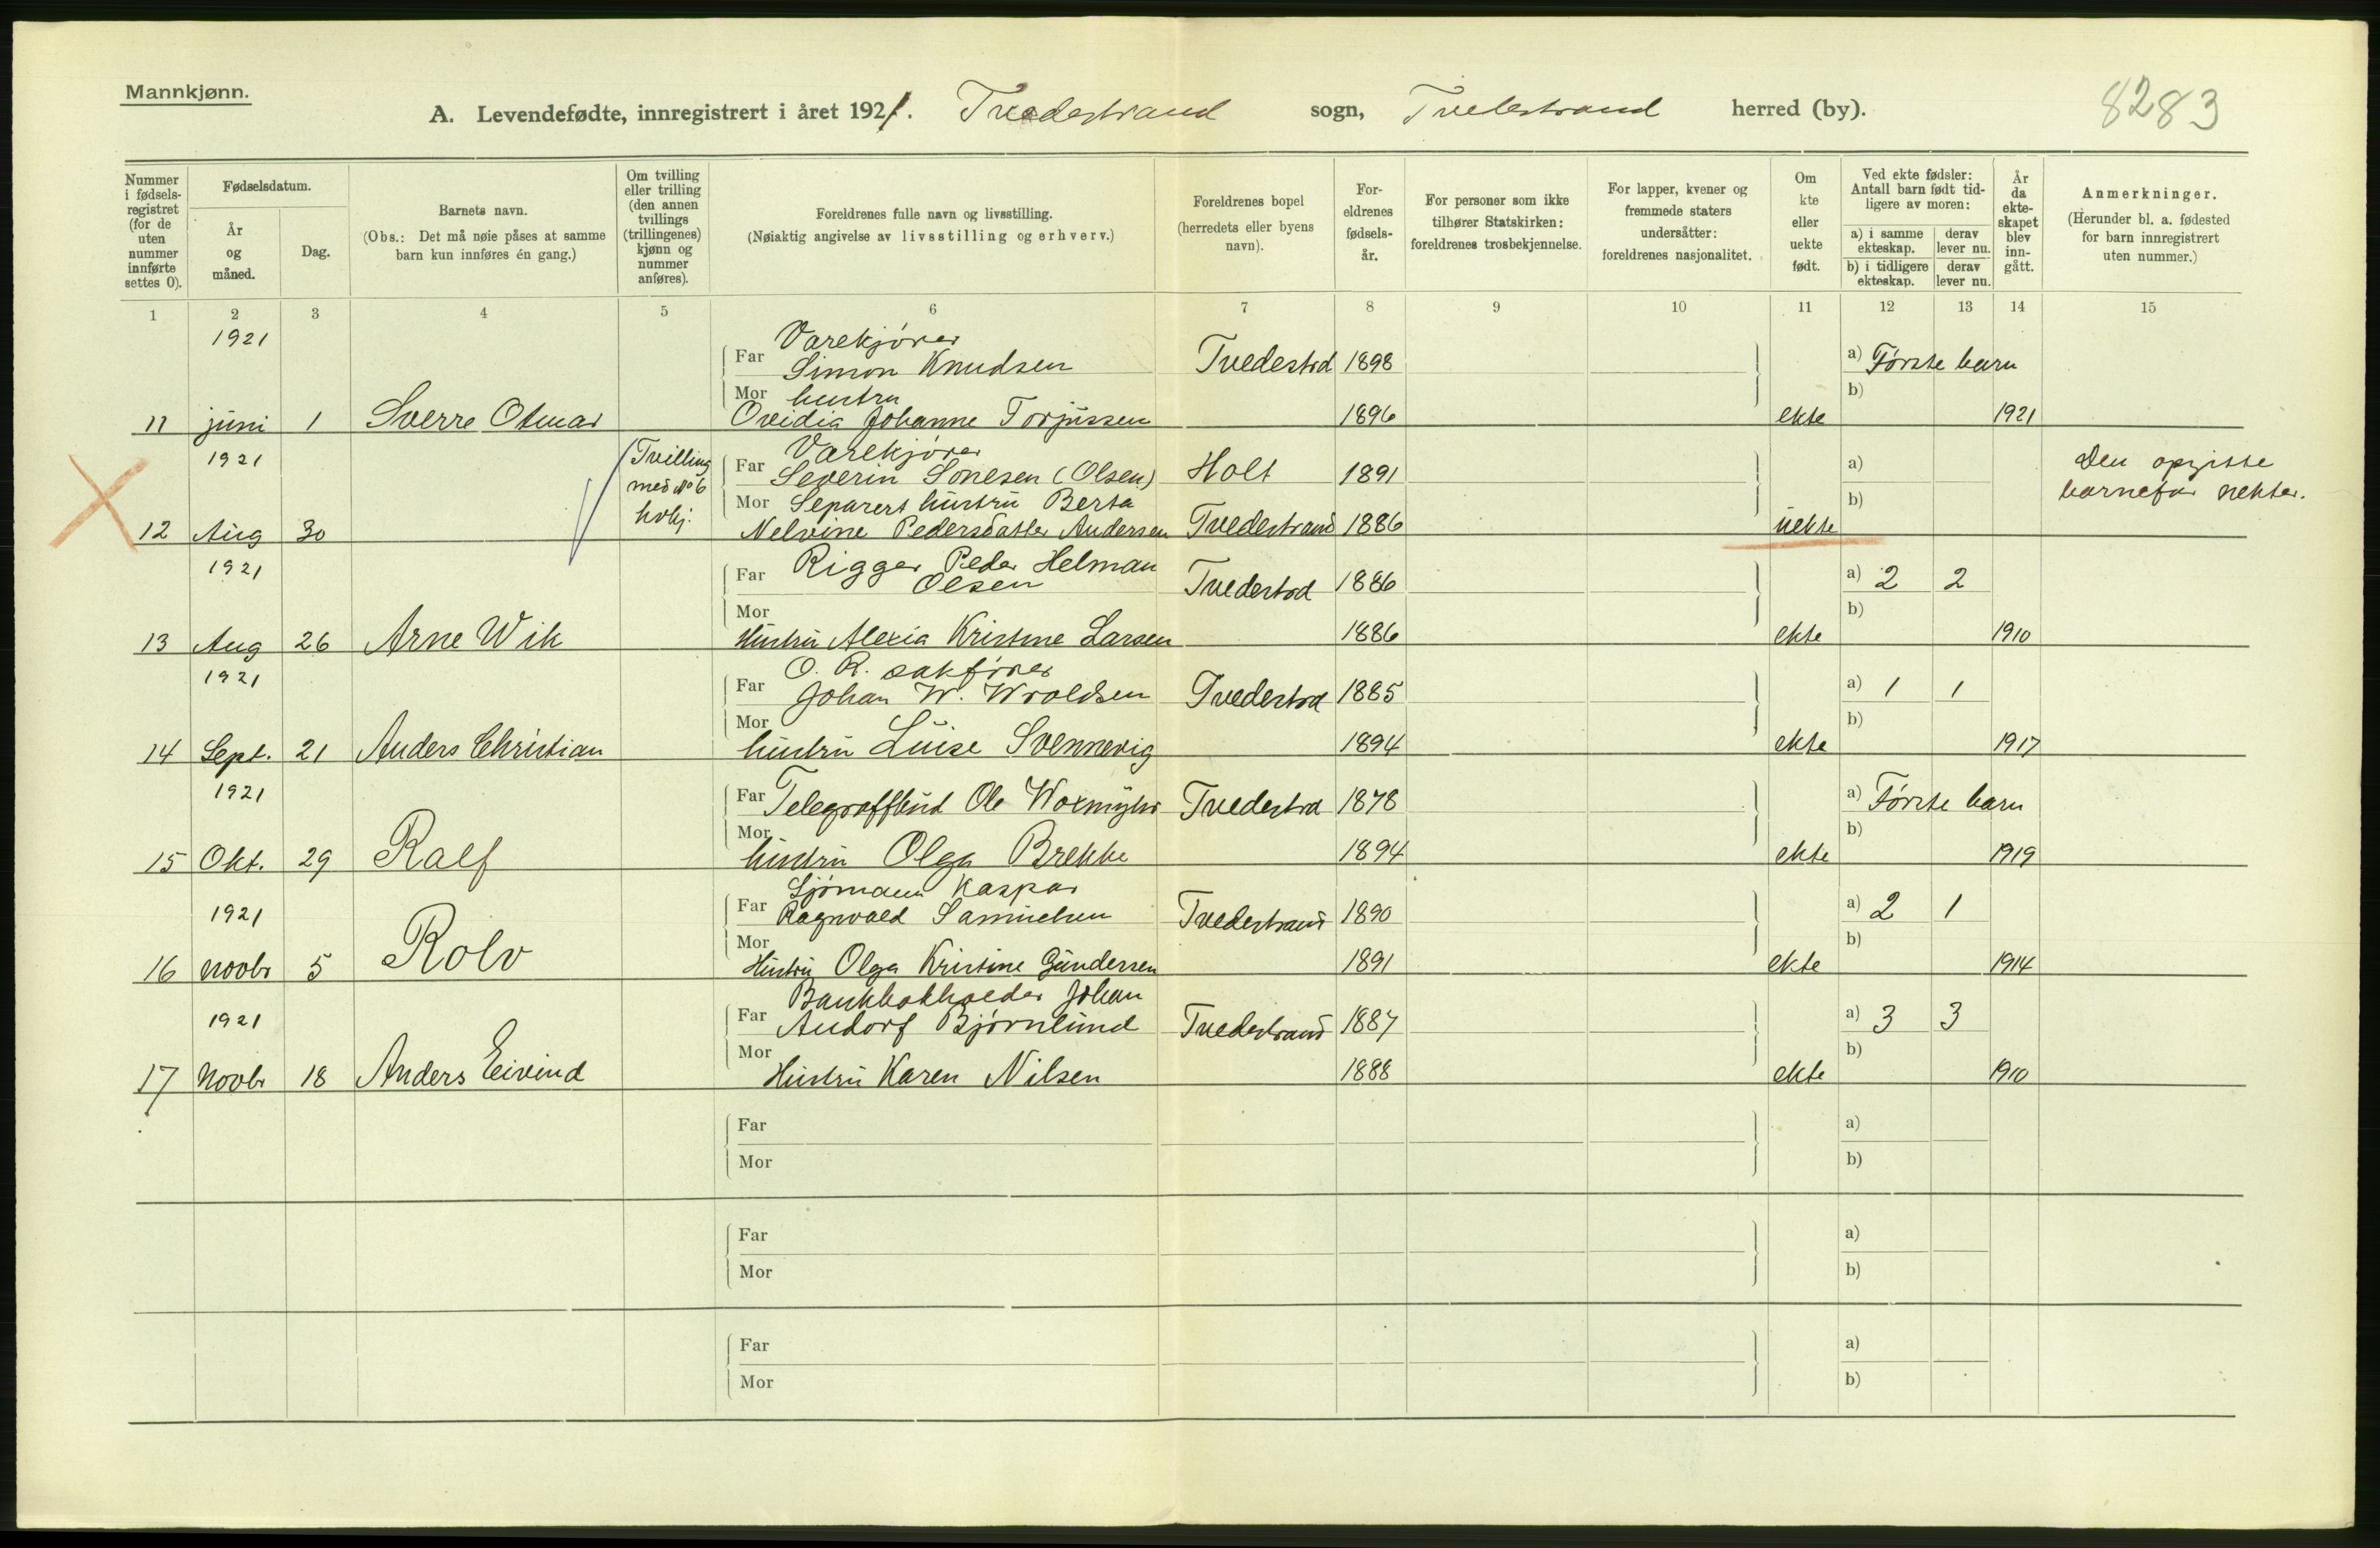 Mannkjønn.
A. Levendefødte, innregistrert i året 1921. Tvedestrand sogn, Tvedestrand herred (by).
8283
Nummer i fødselsregistret (for de uten nummer innførte settes 0).
Fødselsdatum.
År og måned.
Dag.
Barnets navn.
(Obs.: Det må nøie påses at samme barn kun innføres én gang.)
Om tvilling eller trilling (den annen tvillings (trillingenes) kjønn og nummer anføres).
Foreldrenes fulle navn og livsstilling.
(Nøiaktig angivelse av livsstilling og erhverv.)
Foreldrenes bopel (herredets eller byens navn).
Foreldrenes fødselsår.
For personer som ikke tilhører Statskirken: foreldrenes trosbekjennelse.
For lapper, kvener og fremmede staters undersåtter: foreldrenes nasjonalitet.
Om kte eller uekte født.
Ved ekte fødsler: Antall barn født tidligere av moren:
a) i samme ekteskap. derav lever nu.
b) i tidligere ekteskap. derav lever nu.
År da ekteskapet blev inngått.
Anmerkninger.
(Herunder bl. a. fødested for barn innregistrert uten nummer.)
1 2 3 4 5 6 7 8 9 10 11 12 13 14 15
1921 Varekjører
Far Simon Knudsen Tvedestrd 1898 a) Første barn
Mor hustru b)
11 juni 1 Sverre Otmar Ovidia Johanne Torjussen 1896 ekte 1921
1921 Tvilling med No 6 kvkj. Varekjører
Far Severin Sonesen (Olsen) Holt 1891 a) Den opgitte
Mor Separert hustru Berta b) barnefar nekter.
12 Aug 30 Nelvine Pedersdatter Andersen Tvedestrand 1886 uekte
1921 Far Rigger Peder Helman
Olsen Tvedestrd 1886 a) 2 2
Mor b)
13 Aug 26 Arne Wik Hustru Alexia Kristine Larsen 1886 ekte 1910
1921 O. R. sakfører
Far Johan W. Wroldsen Tvedestrd 1885 a) 1 1
Mor b)
14 Sept. 21 Anders Christian hustru Luise Svennevig 1894 ekte 1917
1921 Far Telegrafbud Ole Woxmyhr Tvedestrd 1878 a) Første barn
Mor b)
15 Okt. 29 Ralf hustru Olga Brekke 1894 ekte 1919
Sjømann Kaspar
1921 Far Ragnvald Samuelsen Tvedestrand 1890 a) 2 1
Mor b)
16 Novbr 5 Rolv Hustru Olga Kristine Gundersen 1891 ekte 1914
Bankbokholder Johan
1921 Far Andorf Bjørnlund Tvedestrand 1887 a) 3 3
Mor b)
17 Novbr 18 Anders Eivind Hustru Karen Nilsen 1888 ekte 1910
Far a)
Mor b)
Far a)
Mor b)
Far a)
Mor b)